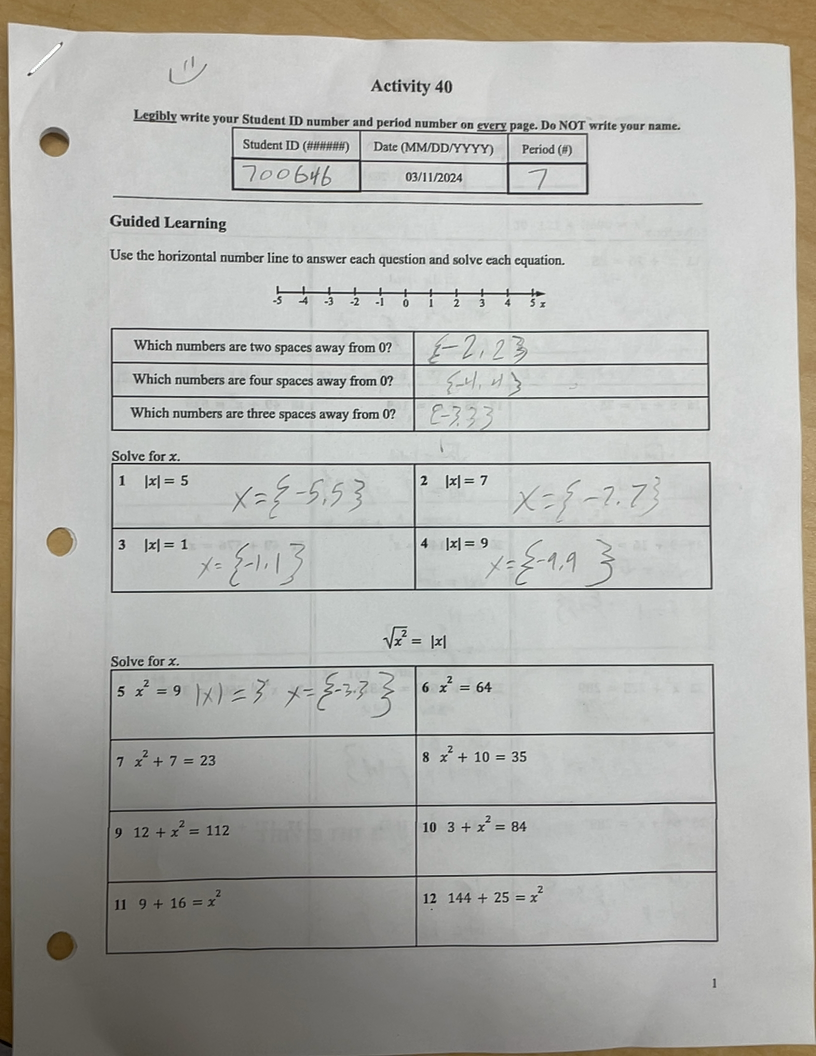 Activity 40
Legibly write your Student ID number and period number on every page. Do NOT write your name.
Student ID (######) Date (MM/DD/YYYY) Period (#)
700646 03/11/2024 7
Guided Learning
Use the horizontal number line to answer each question and solve each equation.
-5 -4 -3 -2 -1 0 1 2 3 4 5 x
Which numbers are two spaces away from 0? {-2, 2}
Which numbers are four spaces away from 0? {-4, 4}
Which numbers are three spaces away from 0? {-3,3}
Solve for x.
1 |x| = 5 x={-5,5} 2 |x| = 7 x={-7,7}
3 |x| = 1 x={-1,1} 4 |x| = 9 x={-9,9}
√x² = |x|
Solve for x.
5 x² = 9 |x| = 3 x={-3,3} 6 x² = 64
7 x² + 7 = 23 8 x² + 10 = 35
9 12 + x² = 112 10 3 + x² = 84
11 9 + 16 = x² 12 144 + 25 = x²
1